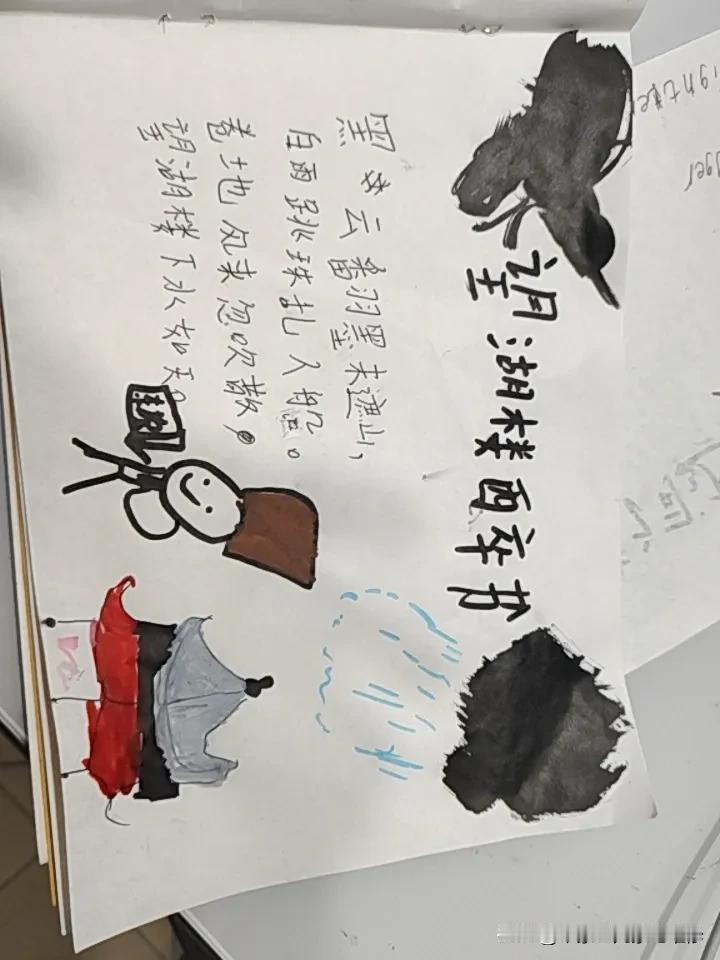 望湖楼醉书
黑云翻墨未遮山，
白雨跳珠乱入船。
卷地风来忽吹散，
望湖楼下水如天。